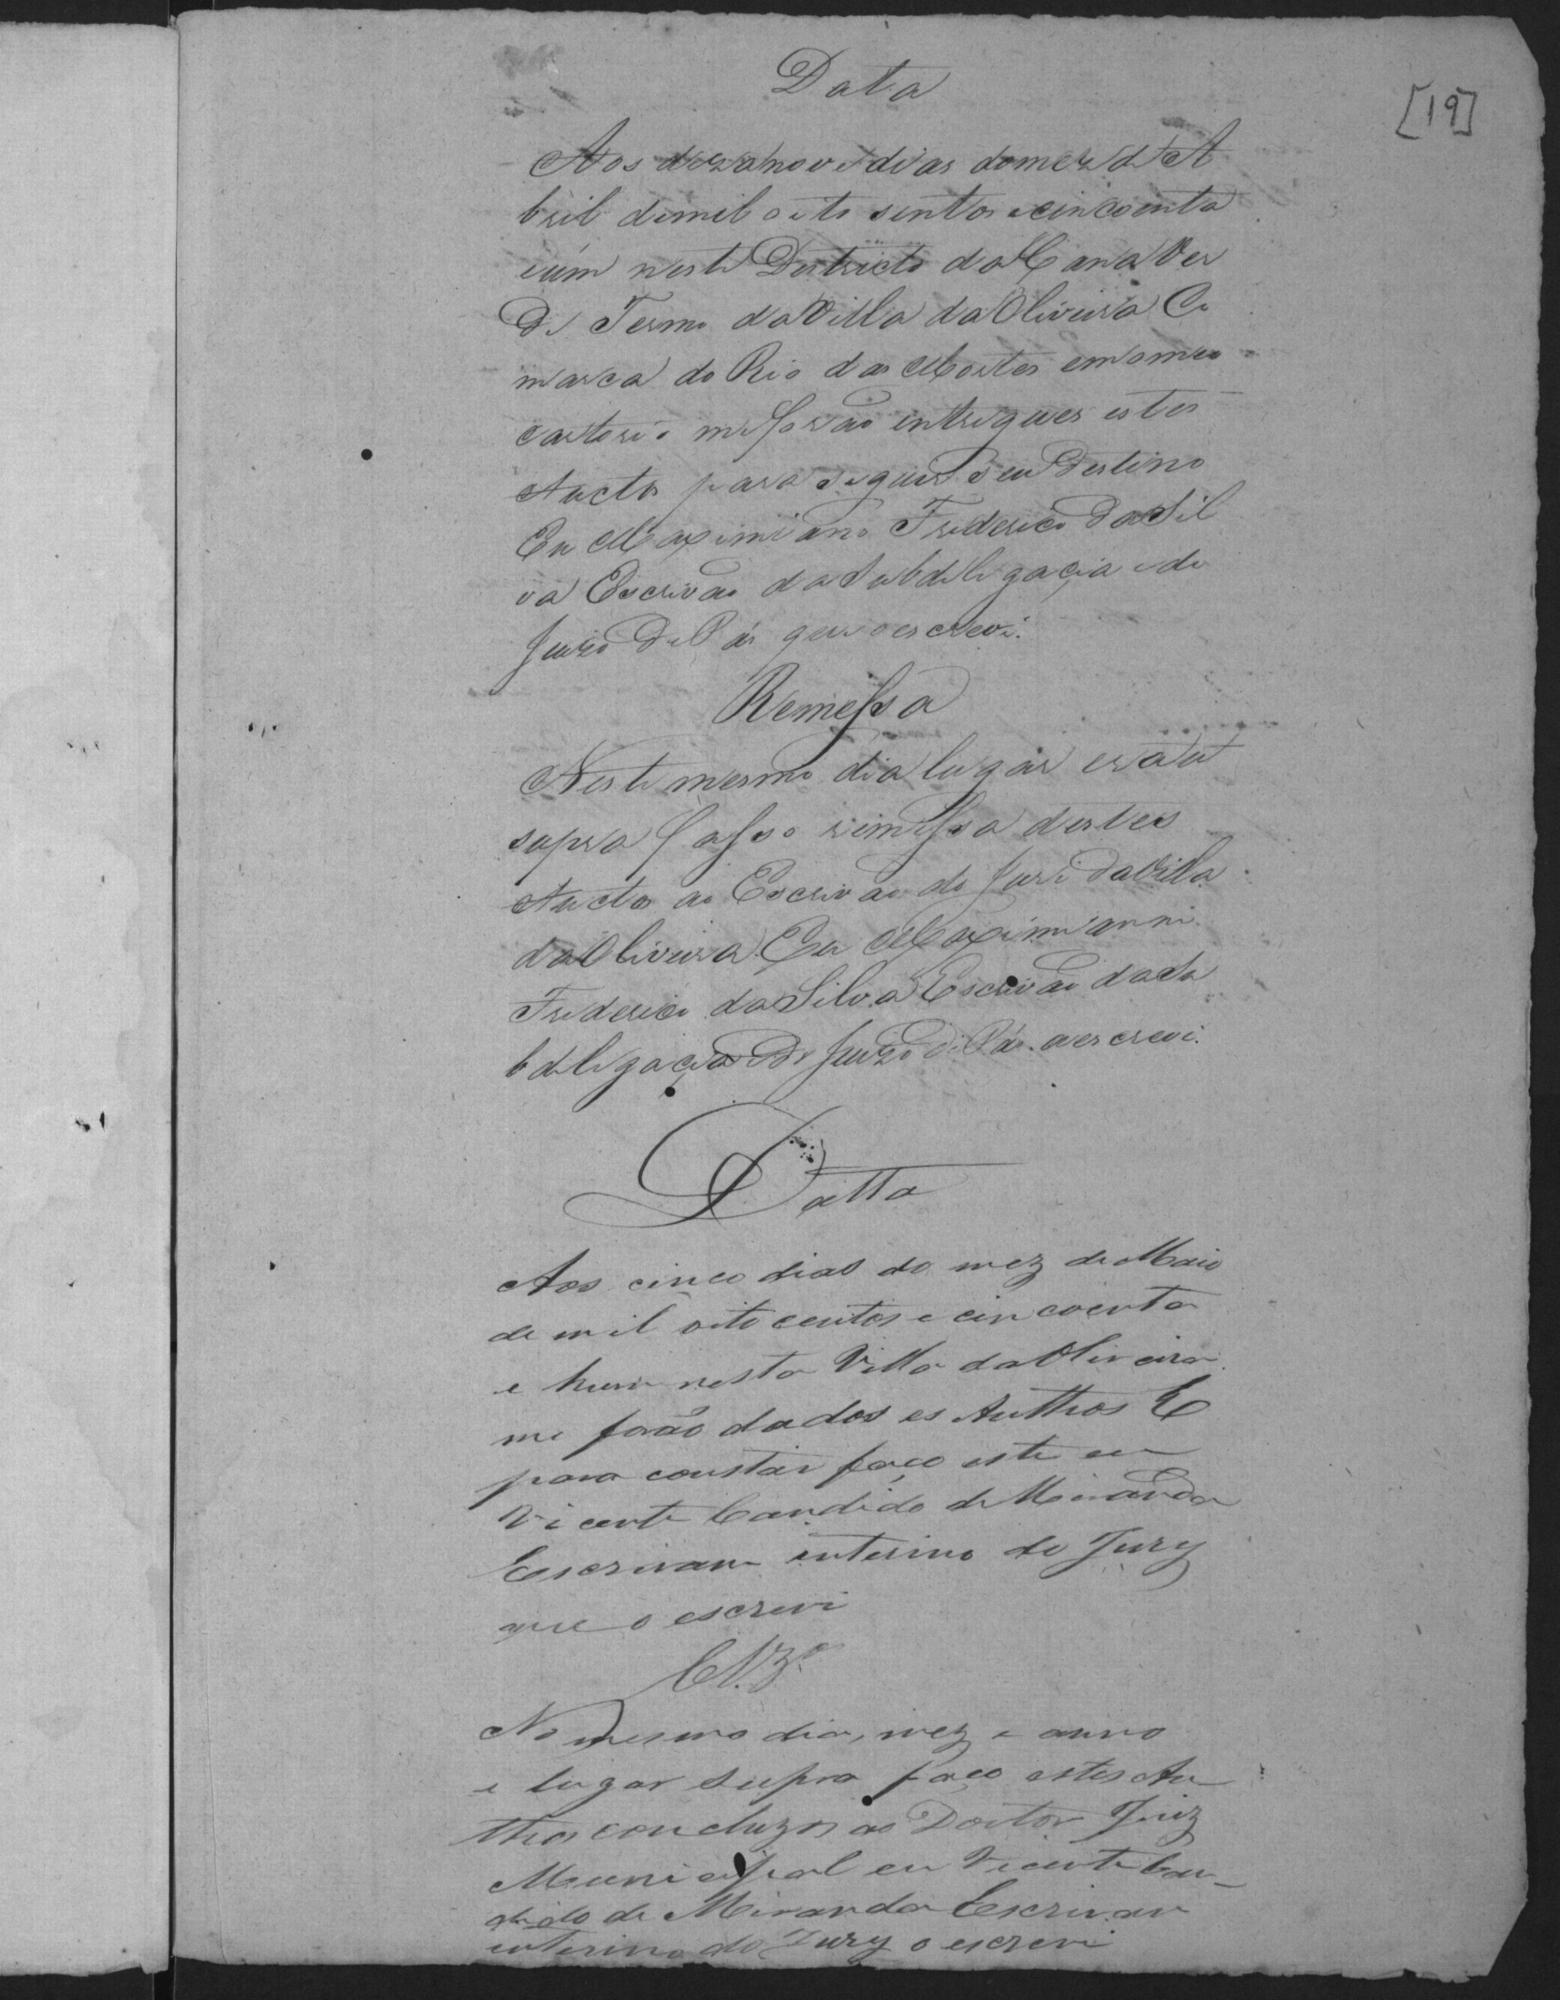 [19]
Data
Aos dezanove dias do mez de A
bril de mil oito sentos e cincoenta
eúm neste Destricto da Cana Ver
de Termo da Villa da Oliveira Co
marca do Rio das Mortes em o meo
cartorio me forão entregues estes
Auctos para seguir seu Destino
Eu Maximiano Friderico da Sil
va Escrivão da Subdeligacia e do
Juizo de Pás que o escrevi.
Remessa
Neste mesmo dia lugár era ut
supra fasso rimessa destes
Auctos ao Escrivão do Juri da Villa
da Oliveira Eu Maximianni
Friderico da Silva Escrivão da Su
bdeligacia do Juizo de Pás. o escrevi.
Datta
Aos cinco dias do mez de Maio
de mil oito centos e cincoenta
e hum nesta Villa da Oliveira
me forão dados es Authos E
para constar faço este eu
Vicente Candido de Miranda
Escrivam interino do Jury
que o escrevi
Clz.º
No mesmo dia, mez e anno
e lugar supra faço estes Au-
thos concluzos ao Doutor Juiz
Municipal eu Vicente Can-
dido de Miranda Escrivam
interino do Jury o escrevi